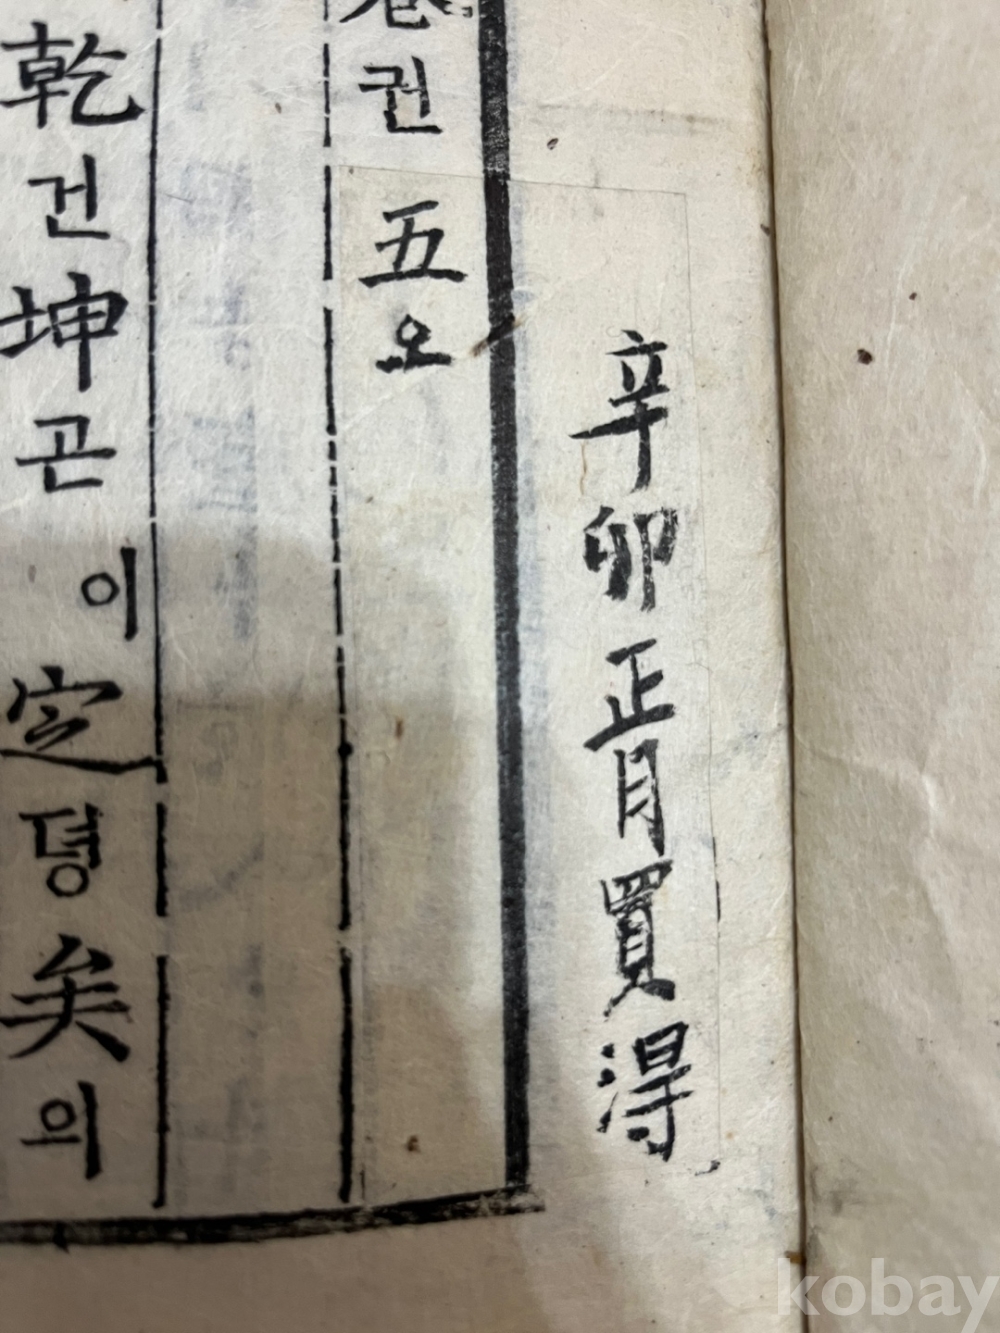 辛卯正月買得
卷권五오
乾건坤곤이定뎡矣의
kobay